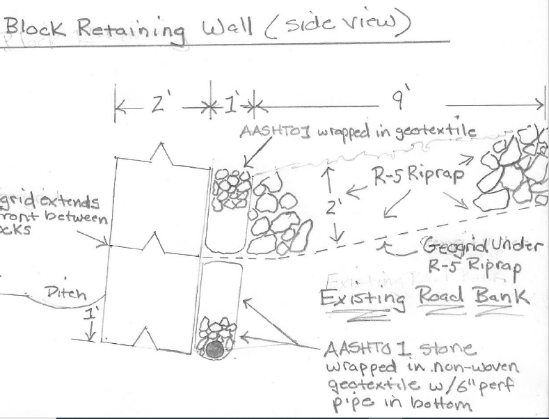 Block Retaining Wall (side view)
2' 1' 9'
AASHTO1 wrapped in geotextile
R-5 Riprap
2'
grid extends
front between
ocks
Geogrid Under
R-5 Riprap
Ditch
Existing Road Bank
1'
AASHTO 1 stone
wrapped in non-woven
geotextile w/6" perf
pipe in bottom